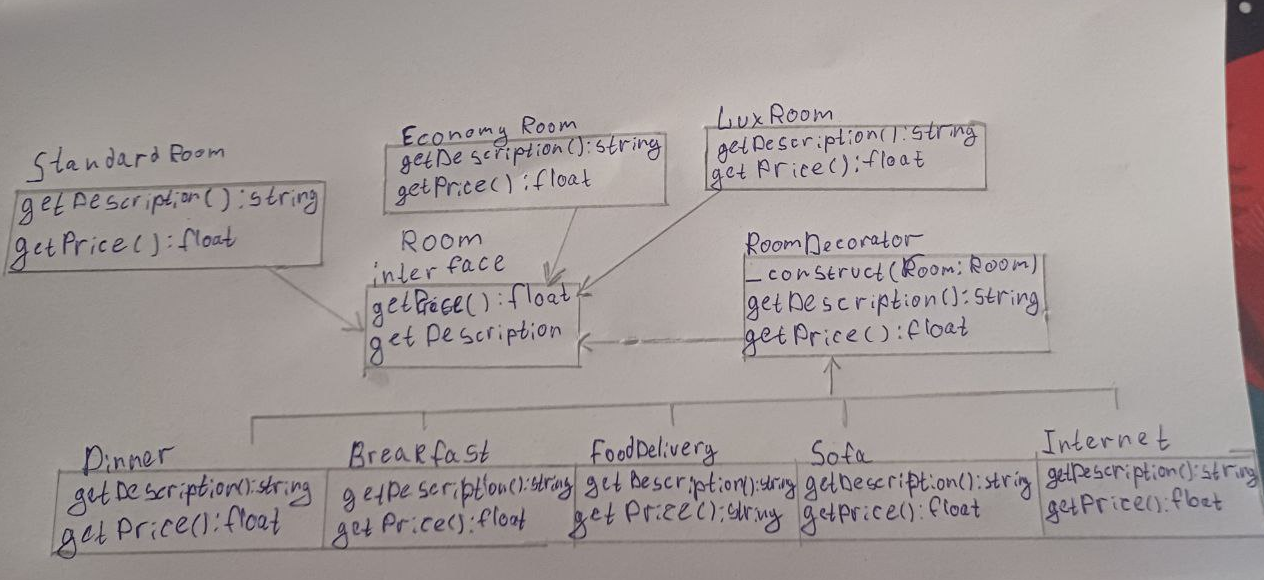 Standard Room
getDescription():string
getPrice():float
Economy Room
getDescription():string
getPrice():float
LuxRoom
getDescription():string
getPrice():float
Room
interface
getPrice():float
getDescription
RoomDecorator
_construct(Room:Room)
getDescription():string
getPrice():float
Dinner
getDescription():string
getPrice():float
Breakfast
getDescription():string
getPrice():float
FoodDelivery
getDescription():string
getPrice():string
Sofa
getDescription():string
getprice():float
Internet
getDescription():string
getprice():float